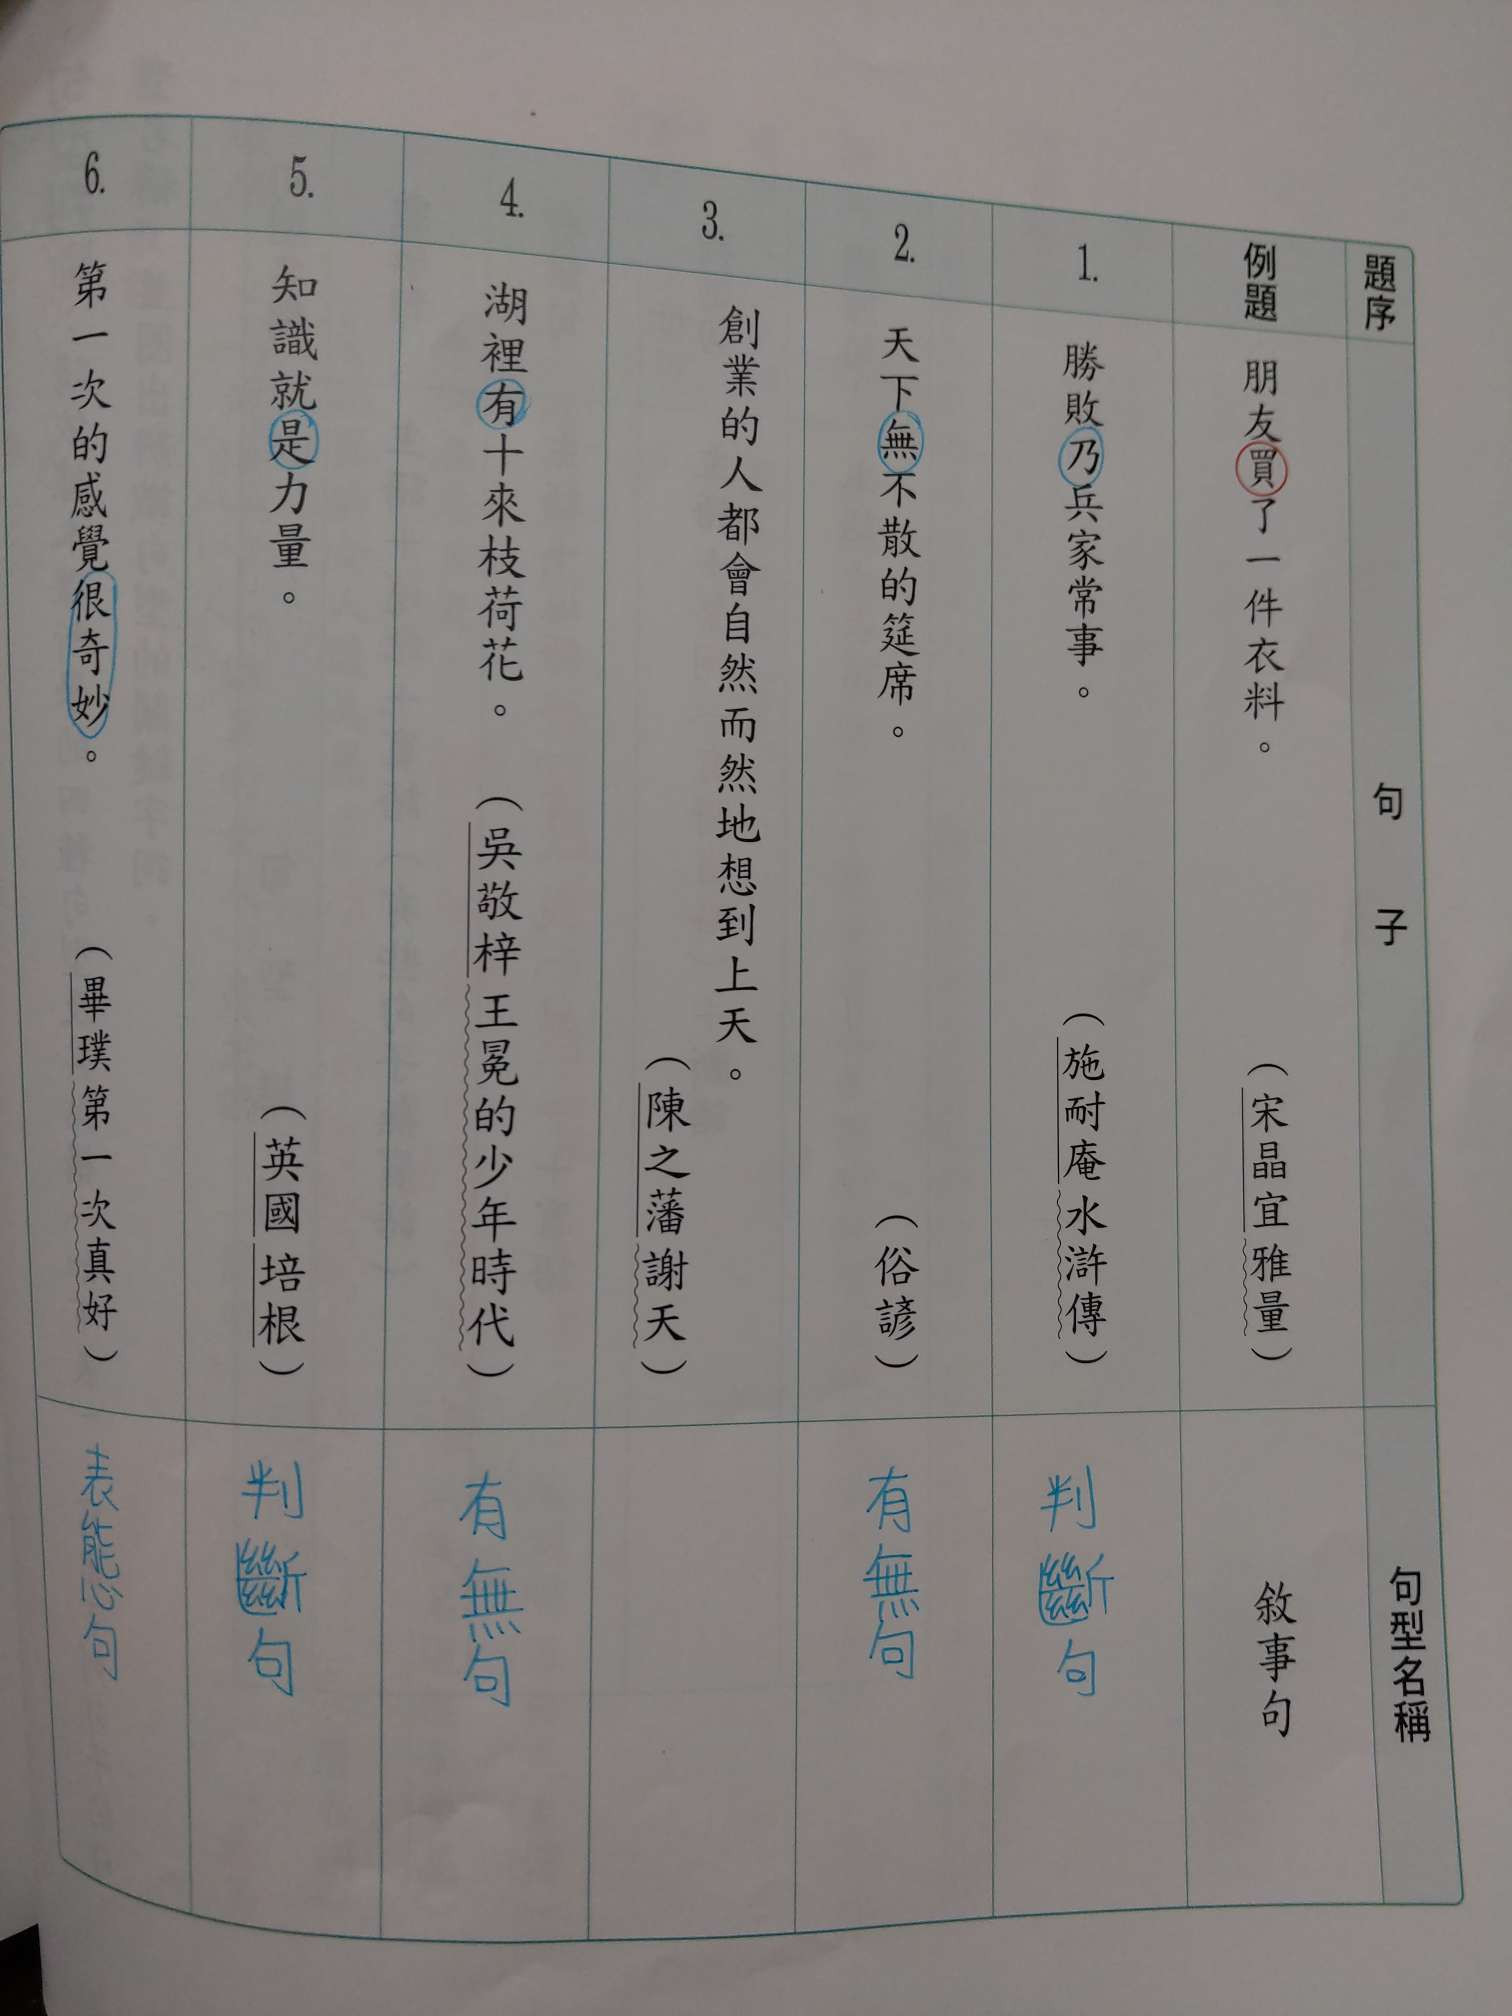 題序
句子
句型名稱
例題
朋友買了一件衣料。
（宋晶宜 雅量）
敘事句
1.
勝敗乃兵家常事。
（施耐庵 水滸傳）
判斷句
2.
天下無不散的筵席。
（俗諺）
有無句
3.
創業的人都會自然而然地想到上天。
（陳之藩 謝天）
4.
湖裡有十來枝荷花。
（吳敬梓 王冕的少年時代）
有無句
5.
知識就是力量。
（英國 培根）
判斷句
6.
第一次的感覺很奇妙。
（畢璞 第一次真好）
表態句